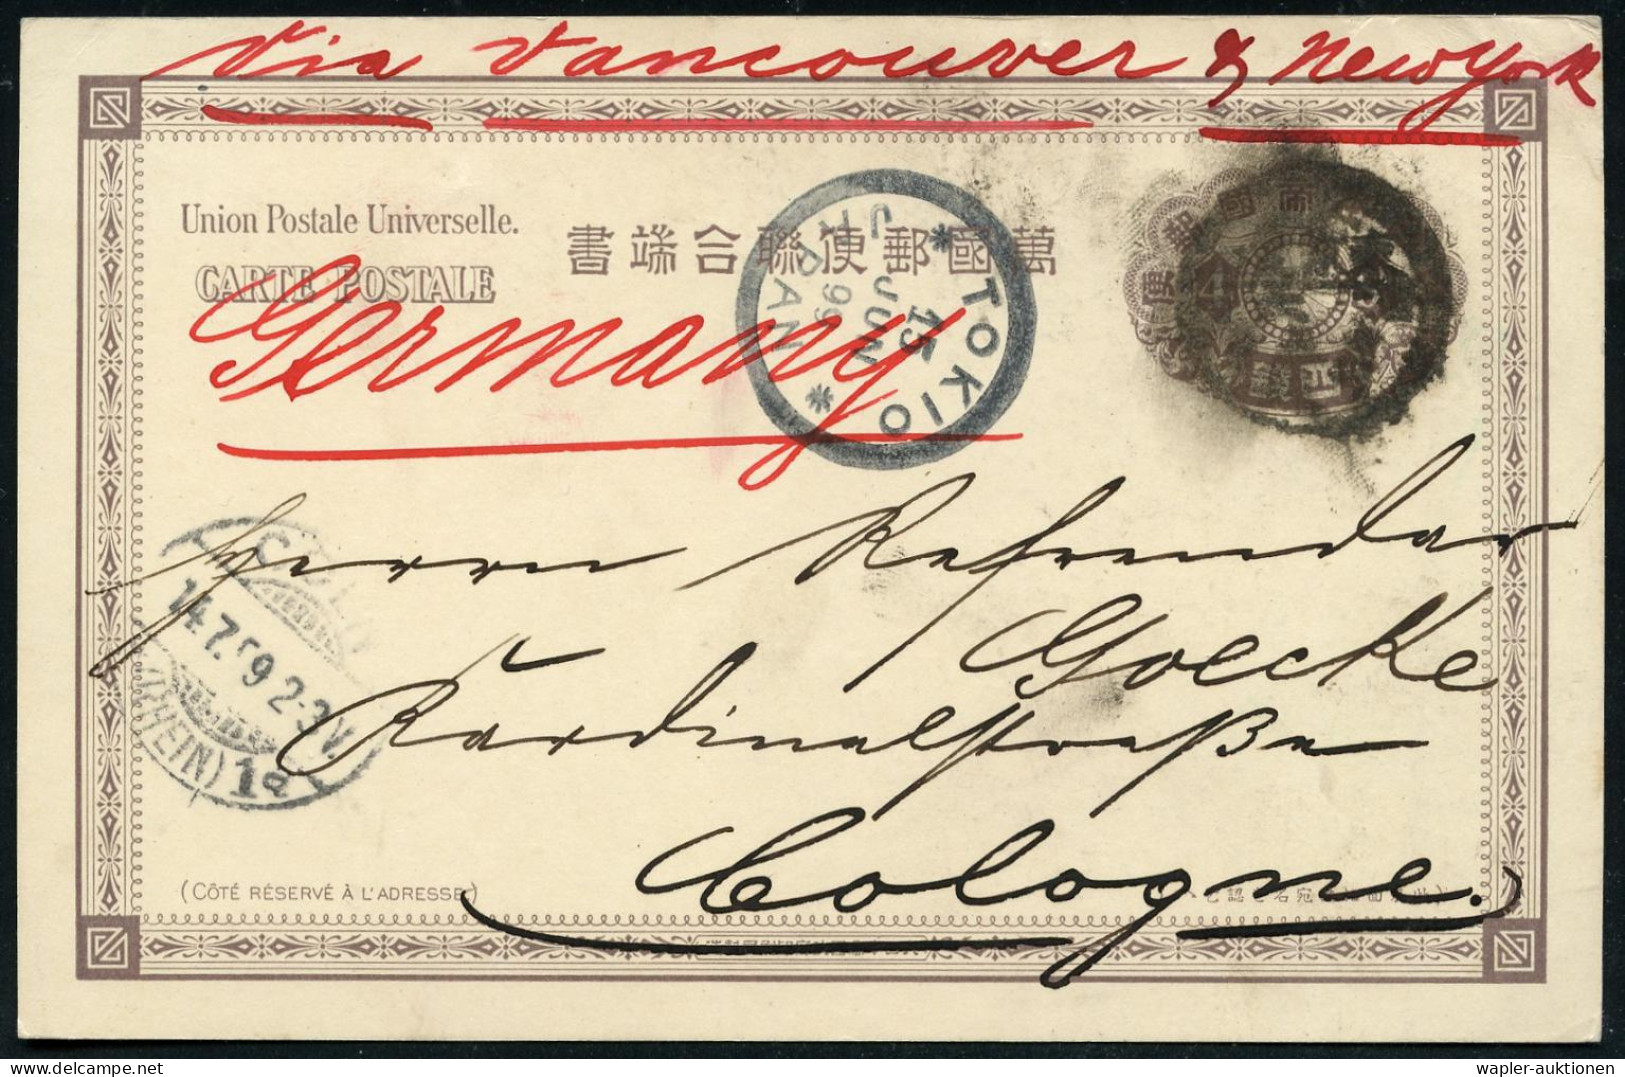 Via Vancouver & New York
Union Postale Universelle.
CARTE POSTALE
萬國郵便聯合端書
Germany
* TOKIO *
15
JUN
99
JAPAN
四錢
4
Herrn Referendar
Goecke
Kardinalstraße
Cologne.
14.7.99 2-3V.
(RHEIN) 1a
(CÔTÉ RÉSERVÉ À L'ADRESSE)
wapler-auktionen